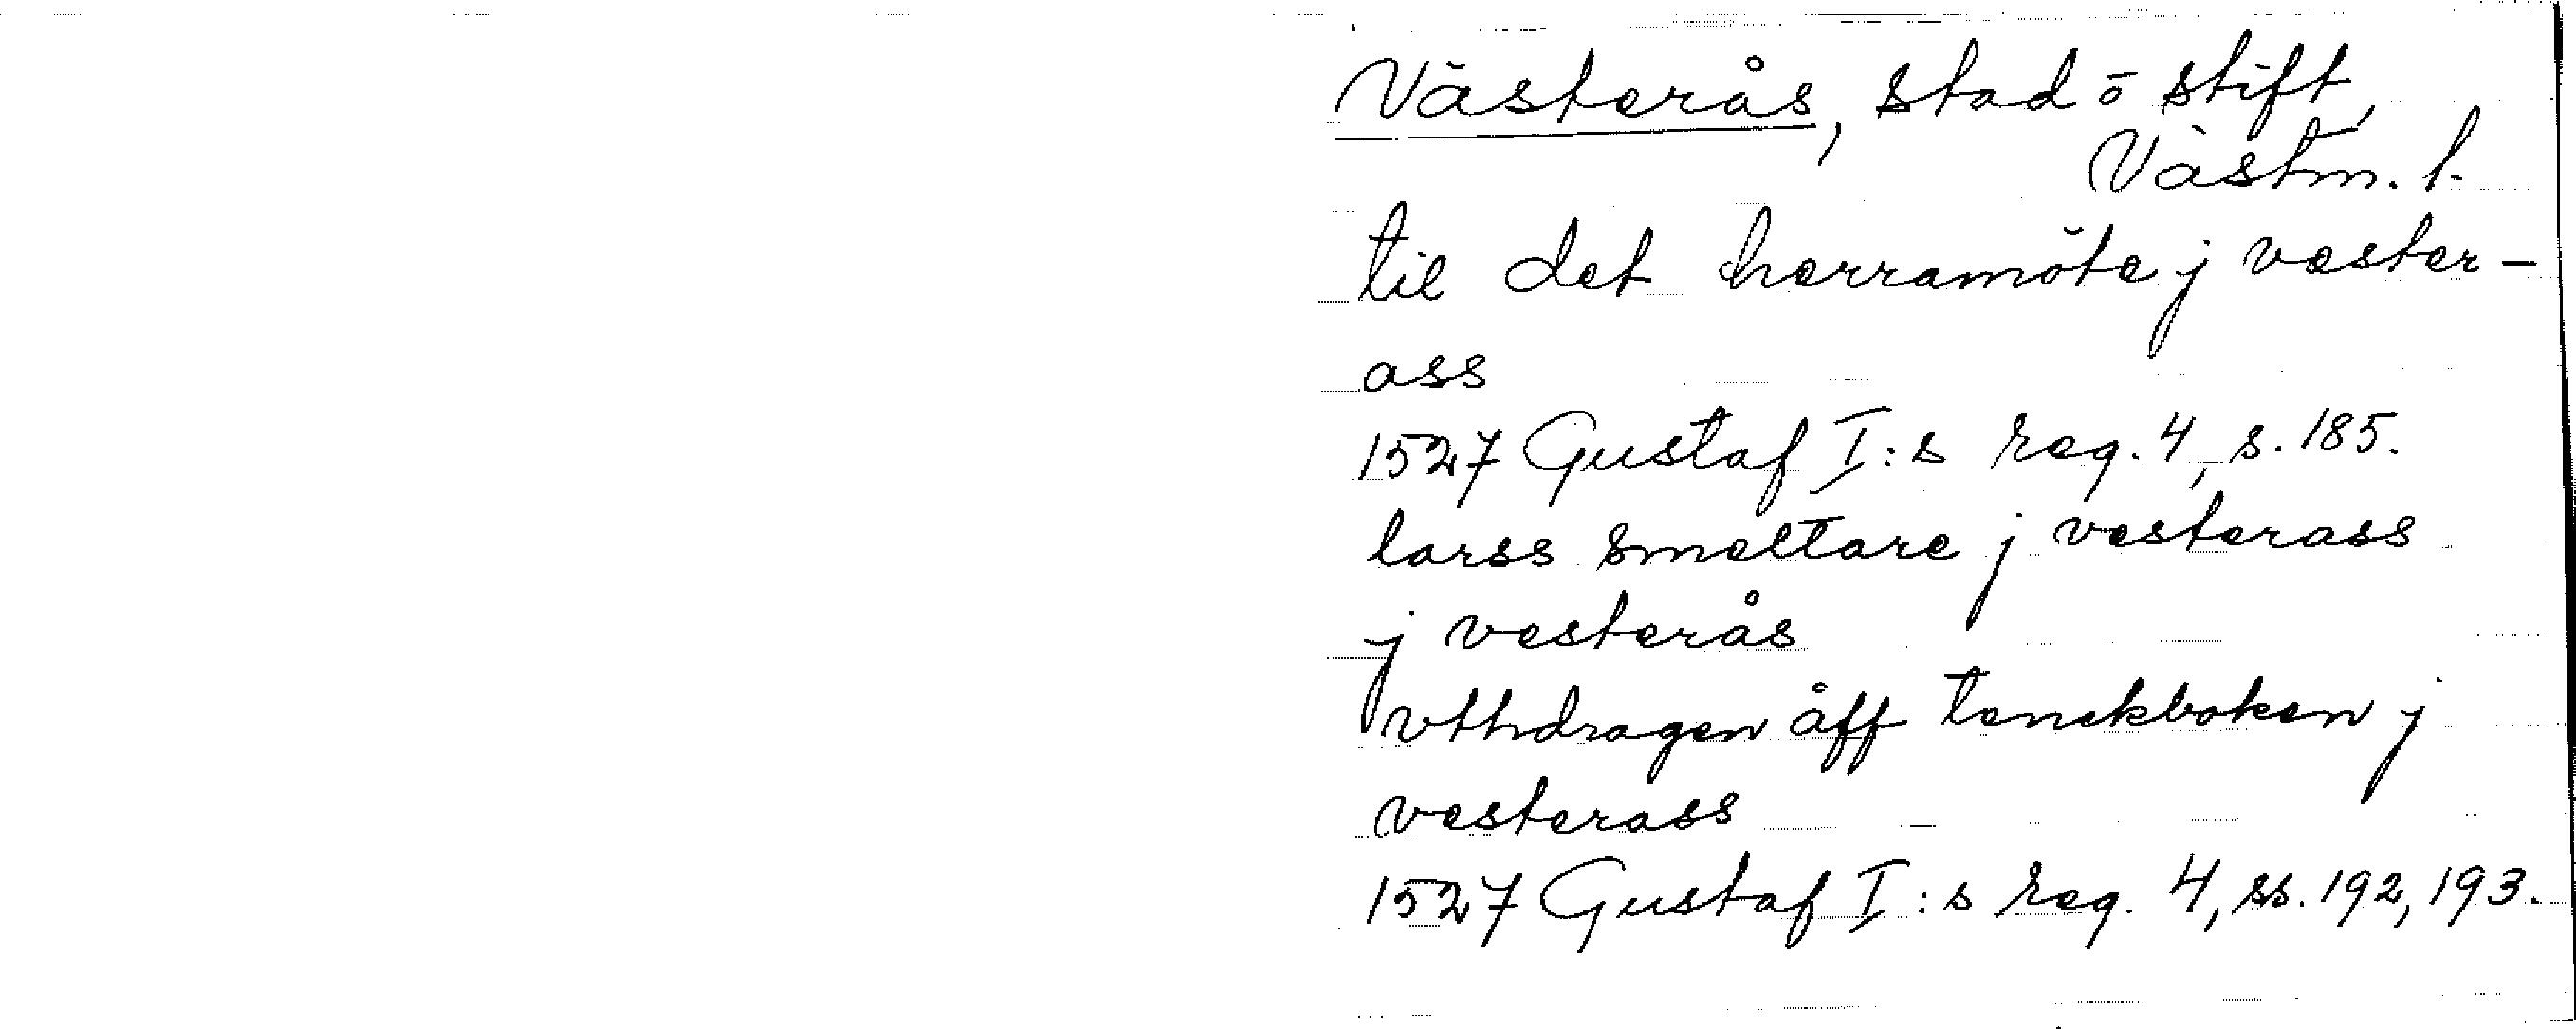 Västerås, stad ō stift,
Västm. l.
til det herramöte j vester-
ass
1527 Gustaf I:s reg. 4, s. 185.
larss smeltare j vesterass
j vesterås
vthdragen åff tenckboken j
vesterass
1527 Gustaf I:s reg. 4, ss. 192, 193.